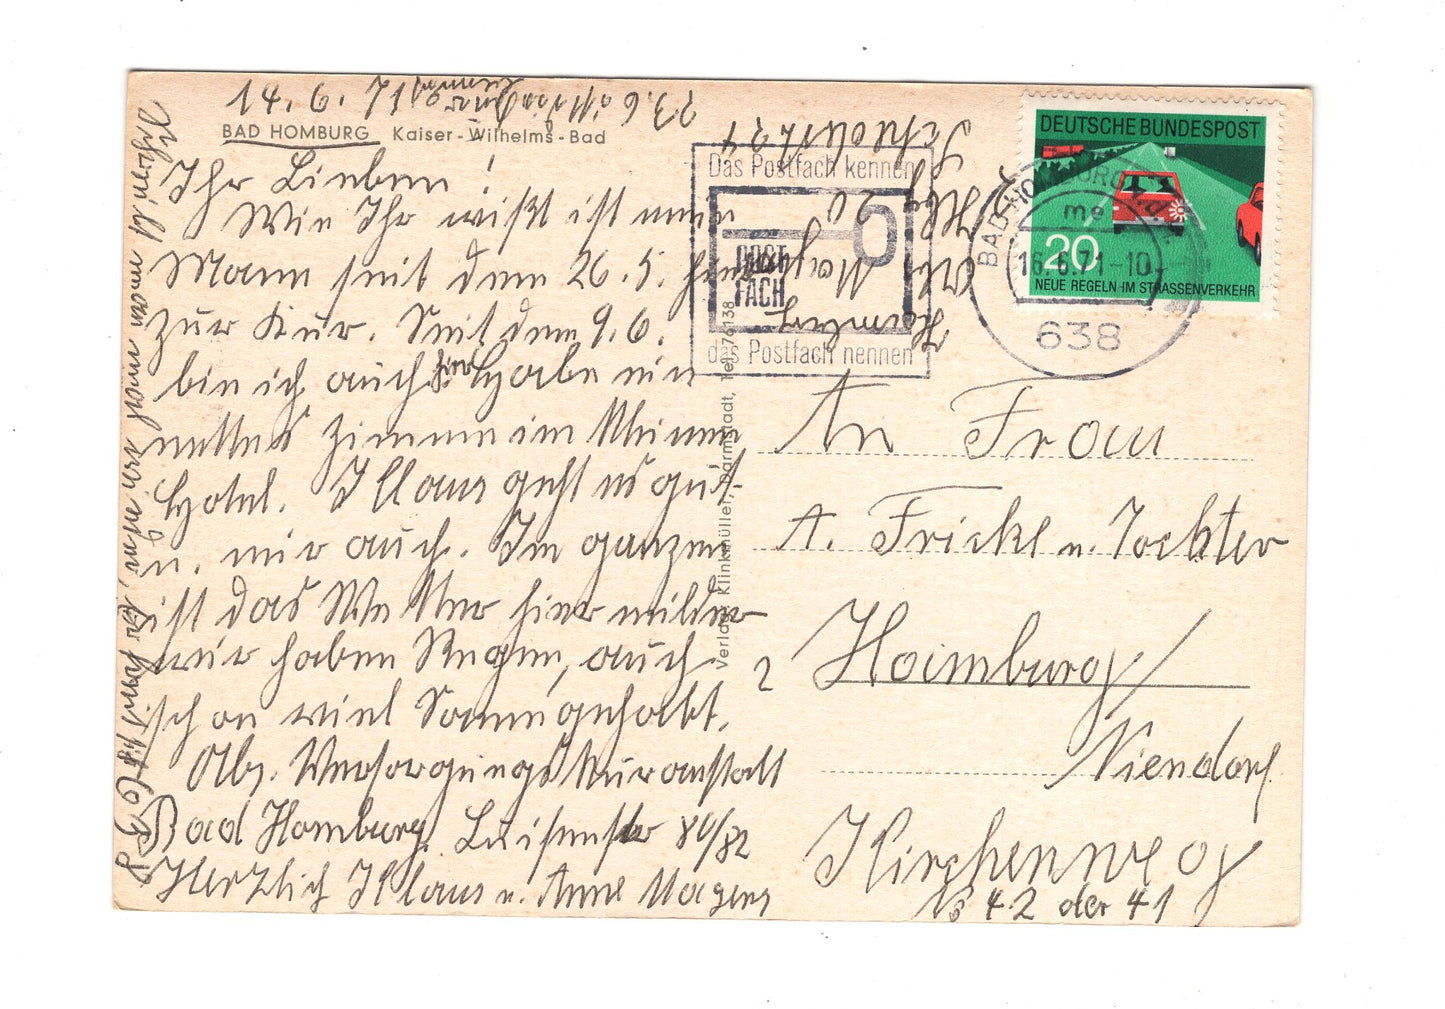 14. 6. 71
BAD HOMBURG Kaiser-Wilhelms-Bad
Ihr Lieben!
Wie Ihr wißt ist mein
Mann seit dem 26.5. hier
zur Kur. Seit dem 9.6.
bin ich auch hier Habe ein
nettes Zimmer im kleinen
Hotel. Klaus geht es gut
u. mir auch. Im ganzen
ist das Wetter hier milder
wir haben Regen, auch
schon viel Sonne gehabt.
Abs. Versorgungskuranstalt
Bad Homburg, Luisenstr 80/82
Herzlich Klaus u. Anne Magens
Schreibt
23.6.
Das Postfach kennen
POST
FACH
das Postfach nennen
Verlag: Klinkmüller, Darmstadt, Tel. 76138
Hamburg
DEUTSCHE BUNDESPOST
20
NEUE REGELN IM STRASSENVERKEHR
BAD HOMBURG v.d.
me
16.6.71-10
638
An Frau
A. Frickl u. Tochter
2 Hamburg/
Niendorf
Kirchenweg
No 42 oder 41